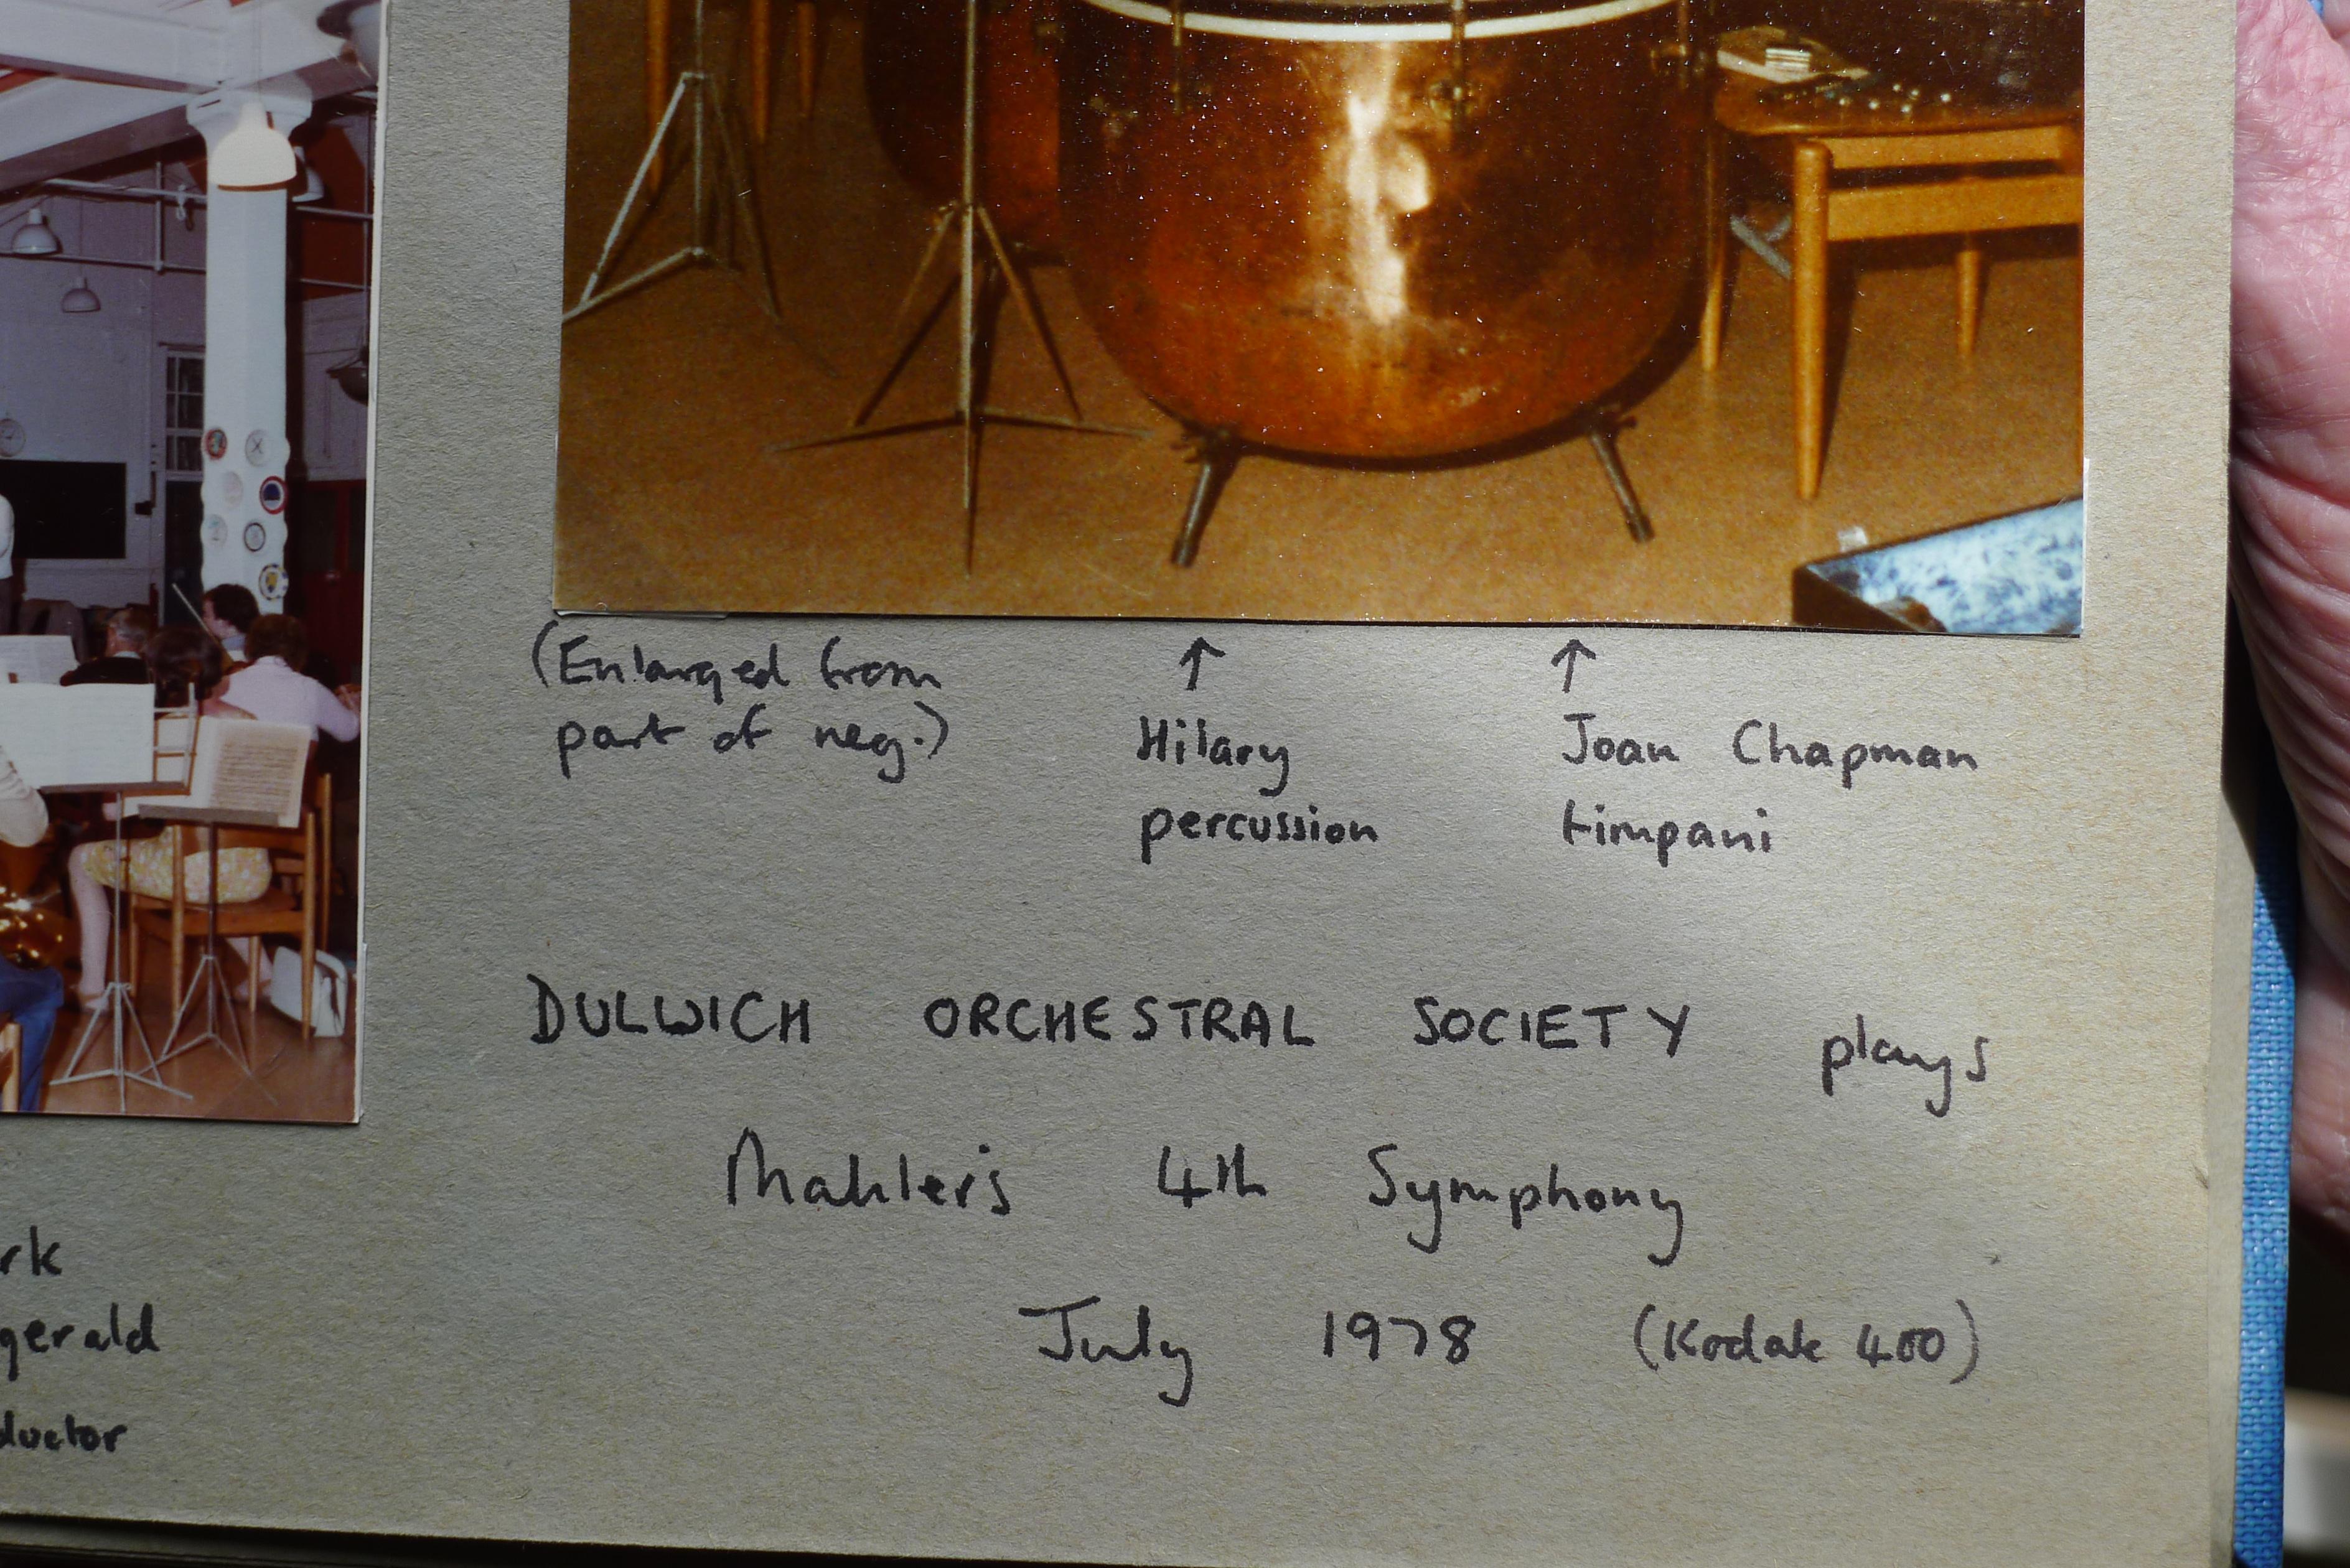 (Enlarged from
part of neg.)
↑
Hilary
percussion
↑
Joan Chapman
timpani
DULWICH ORCHESTRAL SOCIETY plays
Mahler's 4th Symphony
July 1978 (Kodak 400)
rk
gerald
ductor